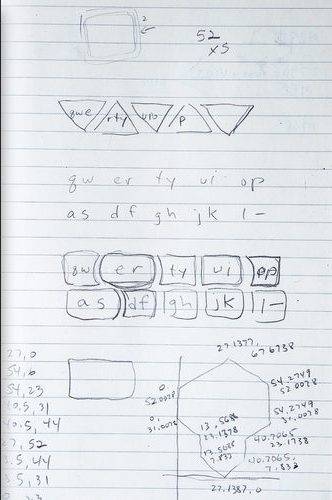 2
52
x5
qwe rty uio p
qw er ty ui op
as df gh jk l-
qw er ty ui op
as df gh jk l-
27.1377,
67.6738
27,0
54,6
54,23
40.5,31
40.5,44
27,52
3.5,44
3.5,31
0,
52.0078
0,
31.0078
54.2749
52.0078
54.2749
31.0078
13.5688
23.1738
13.5688
7.833
40.7065
23.1738
40.7065,
7.833
27.1387,0